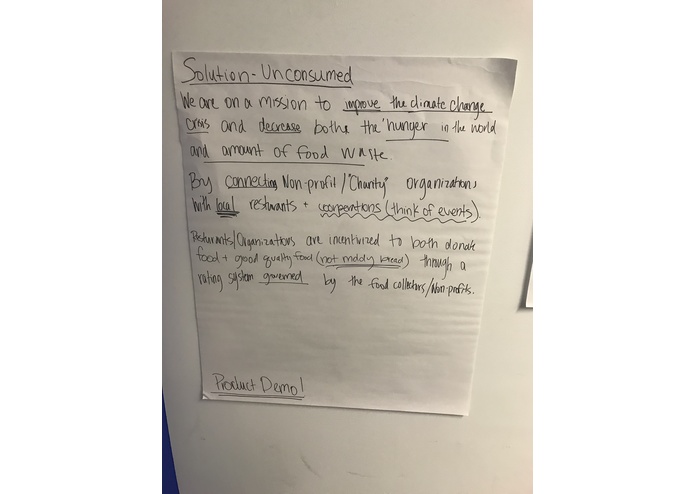 Solution - Unconsumed
We are on a mission to improve the climate change
crisis and decrease bothe the 'hunger in the world
and amount of food waste.
By connecting Non-profit/"Charity" organizations
with local resturants + coorperations (think of events).
Resturants/Organizations are incentivized to both donate
food + good quality food (not moldy bread) through a
rating system governed by the food collectors/Non-profits.
Product Demo!